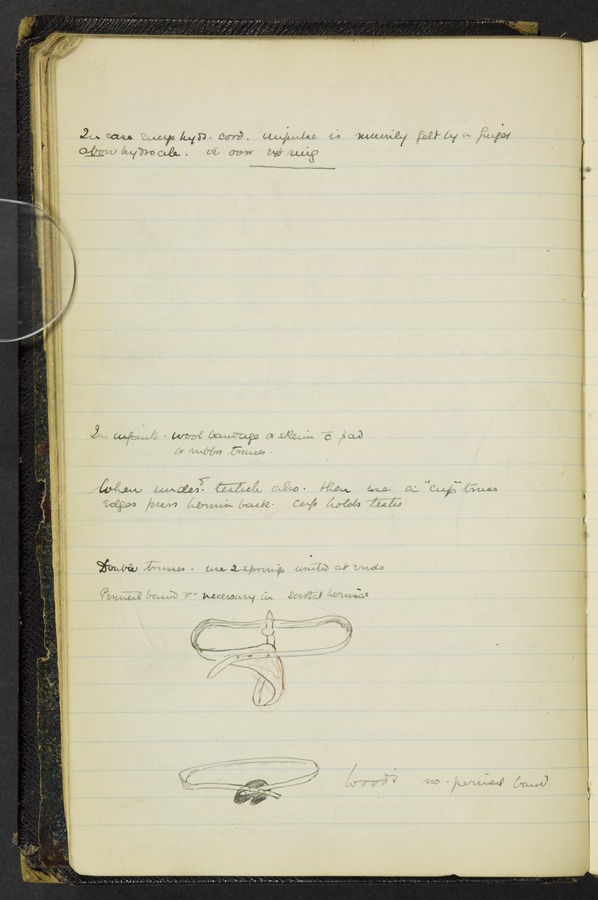 In case encys hydr. cord. impulse is merely felt by a finger
above hydrocele. or over ext ring
In infants. wool bandage or skein c̄ pad
or rubber trusses.
When undesd. testicle also. then use a "cup" truss
edges press hernia back. cup holds testis
Double trusses. use 2 springs united at ends
Perineal band necessary in scrotal hernias
Wood's no perineal band